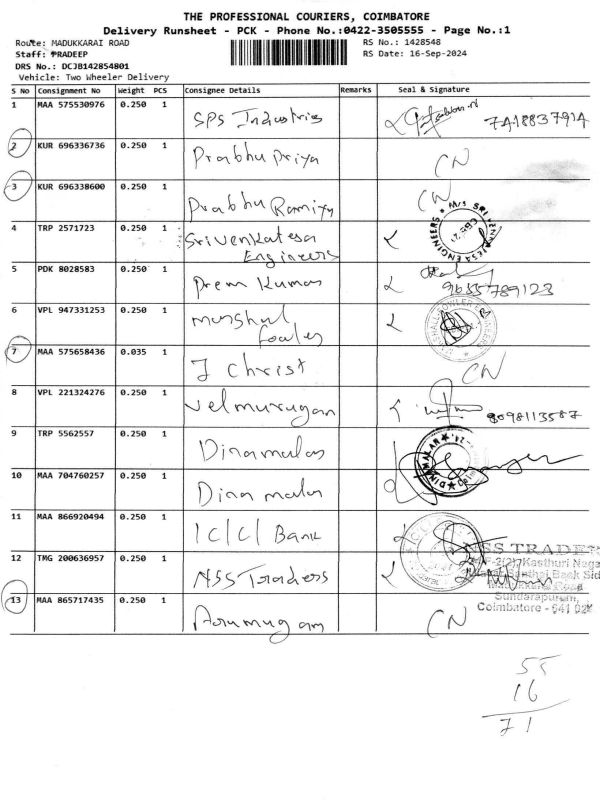 THE PROFESSIONAL COURIERS, COIMBATORE
Delivery Runsheet - PCK - Phone No.:0422-3505555 - Page No.:1
Route: MADUKKARAI ROAD RS No.: 1428548
Staff: PRADEEP RS Date: 16-Sep-2024
DRS No.: DCJB142854801
Vehicle: Two Wheeler Delivery
S No Consignment No Weight PCS Consignee Details Remarks Seal & Signature
1 MAA 575530976 0.250 1 SPS Industries 7418837914
2 KUR 696336736 0.250 1 Prabhu Priya CN
3 KUR 696338600 0.250 1 Prabhu Ramiya CN
4 TRP 2571723 0.250 1 Srivenkatesa Engineers
5 PDK 8028583 0.250 1 Prem Kumar 9655789123
6 VPL 947331253 0.250 1 marshal fowler
7 MAA 575658436 0.035 1 J Christ CN
8 VPL 221324276 0.250 1 Velmurugan 8098113587
9 TRP 5562557 0.250 1 Dinamalar DINAMALAR
10 MAA 704760257 0.250 1 Dinamalar
11 MAA 866920494 0.250 1 ICICI Bank
12 TMG 200636957 0.250 1 NSS Traders
NSS TRADERS
Kasthuri Naga
Back Sid
Road
Sundarapuram,
Coimbatore - 641 024
13 MAA 865717435 0.250 1 Arumugam CN
55
16
71